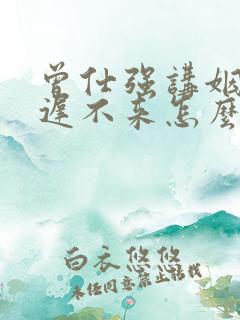 曾仕强講姻
遲不来怎麼
白衣悠悠
未经同意禁止转载